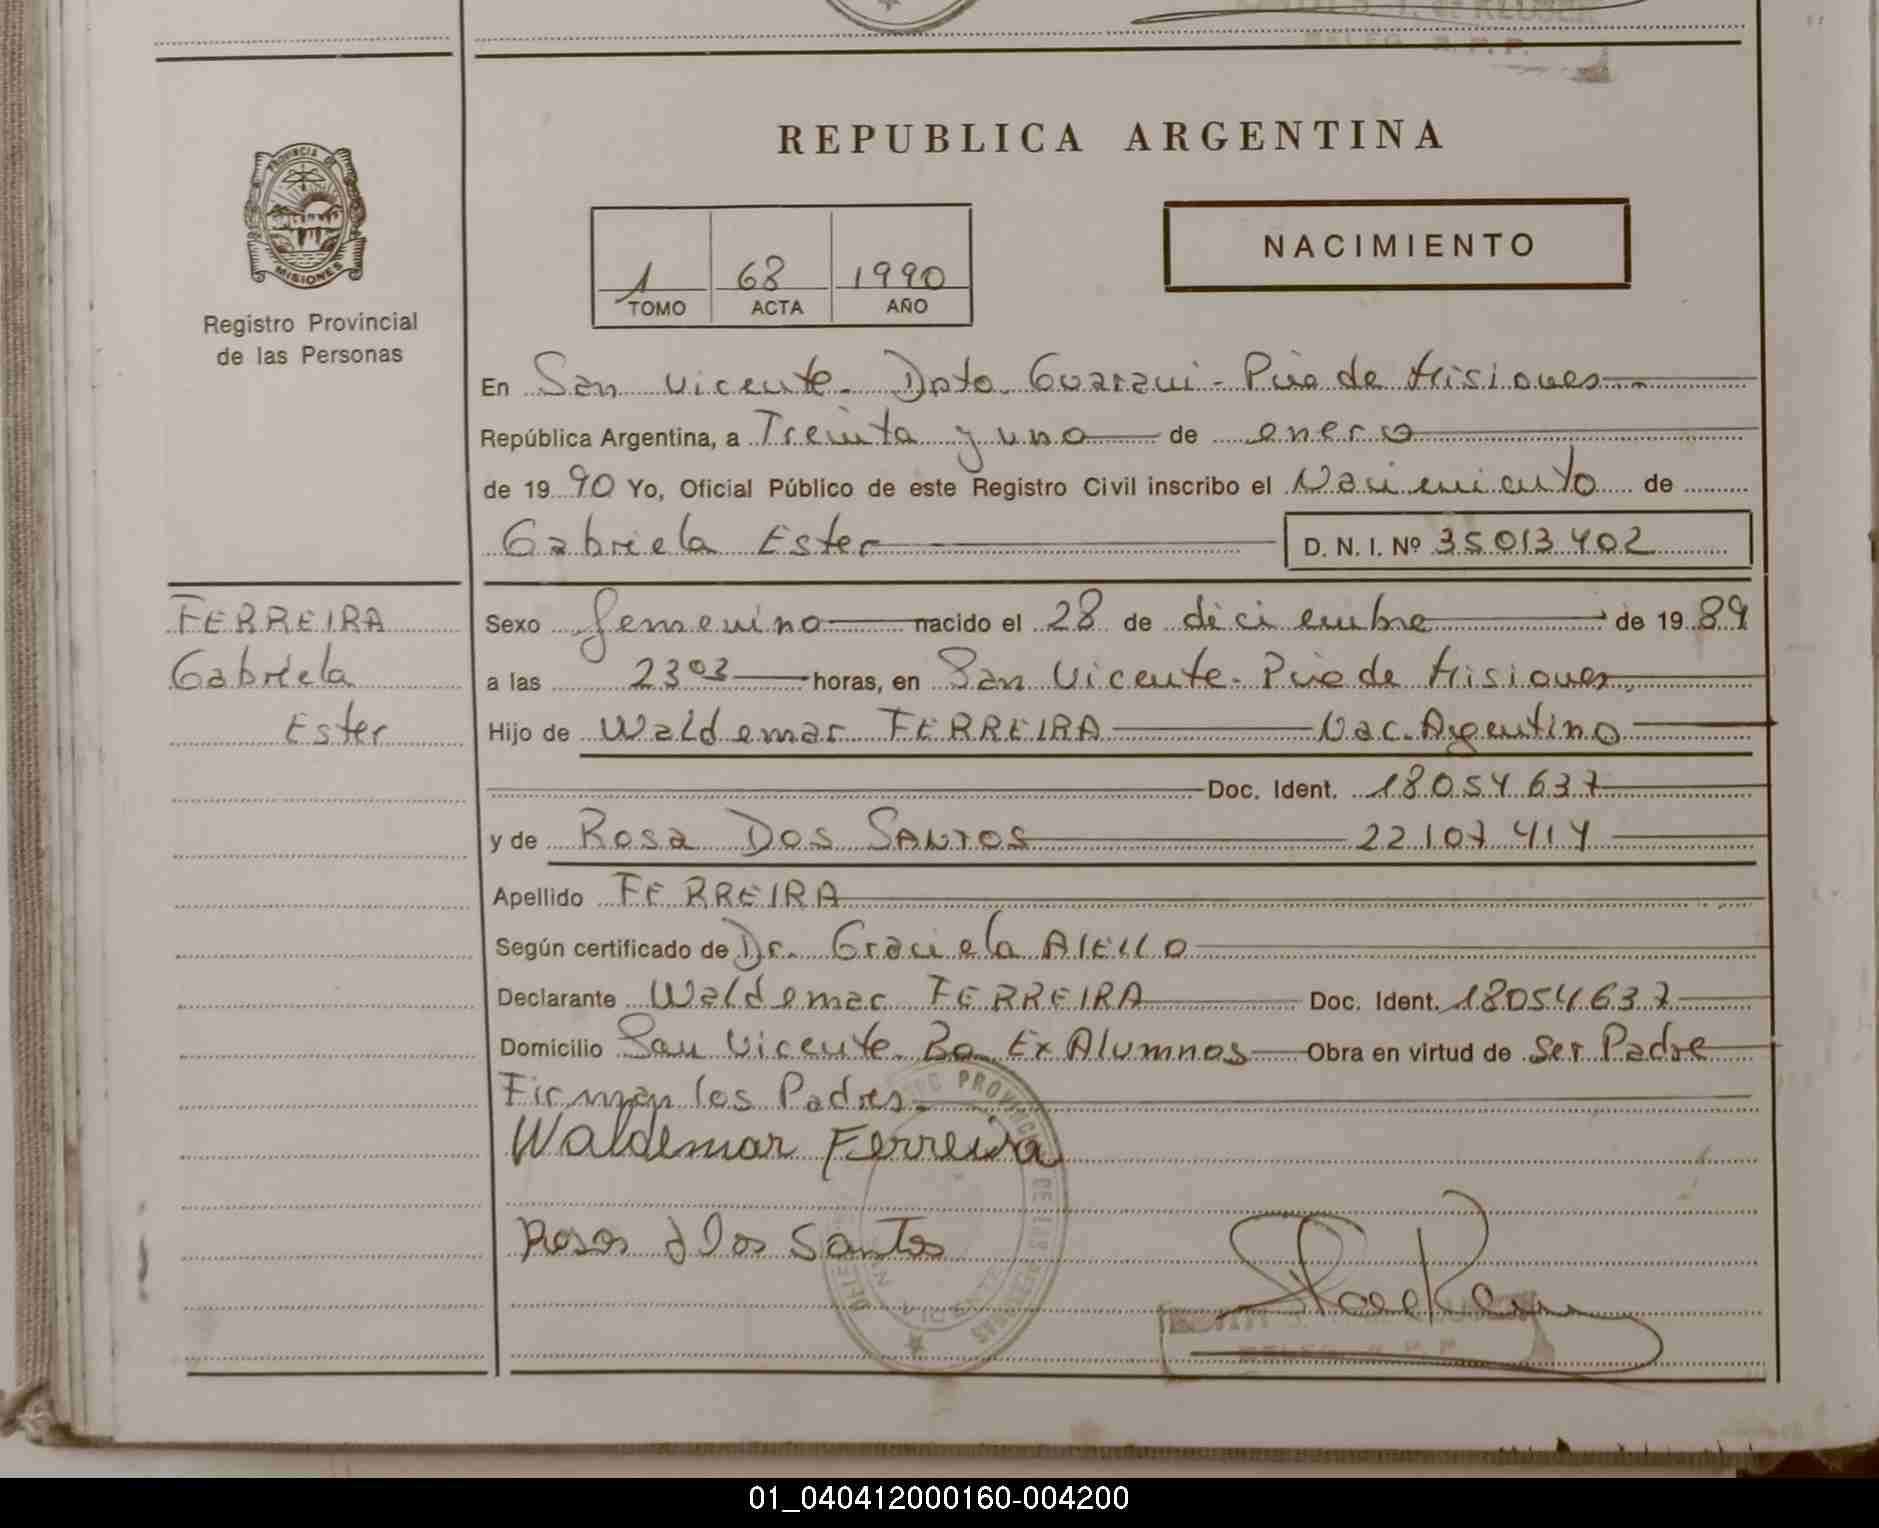 REPUBLICA ARGENTINA
PROVINCIA DE
MISIONES
Registro Provincial
de las Personas
1 68 1990
TOMO ACTA AÑO
NACIMIENTO
En San Vicente. Dpto Guarani - Pcia de Misiones
República Argentina, a Treinta y uno de enero
de 1990 Yo, Oficial Público de este Registro Civil inscribo el Nacimiento de
Gabriela Ester D. N. I. Nº 35013402
FERREIRA
Gabriela
Ester
Sexo femenino nacido el 28 de diciembre de 1989
a las 23 03 horas, en San Vicente - Pcia de Misiones
Hijo de Waldemar FERREIRA Nac. Argentino
Doc. Ident. 18054637
y de Rosa DOS SANTOS 22107414
Apellido FERREIRA
Según certificado de Dr. Graciela AIELLO
Declarante Waldemar FERREIRA Doc. Ident. 18054637
Domicilio San Vicente Bo Ex Alumnos Obra en virtud de Ser Padre
Firman los Padres.
Waldemar Ferreira
Rosa dos Santos
01_040412000160-004200